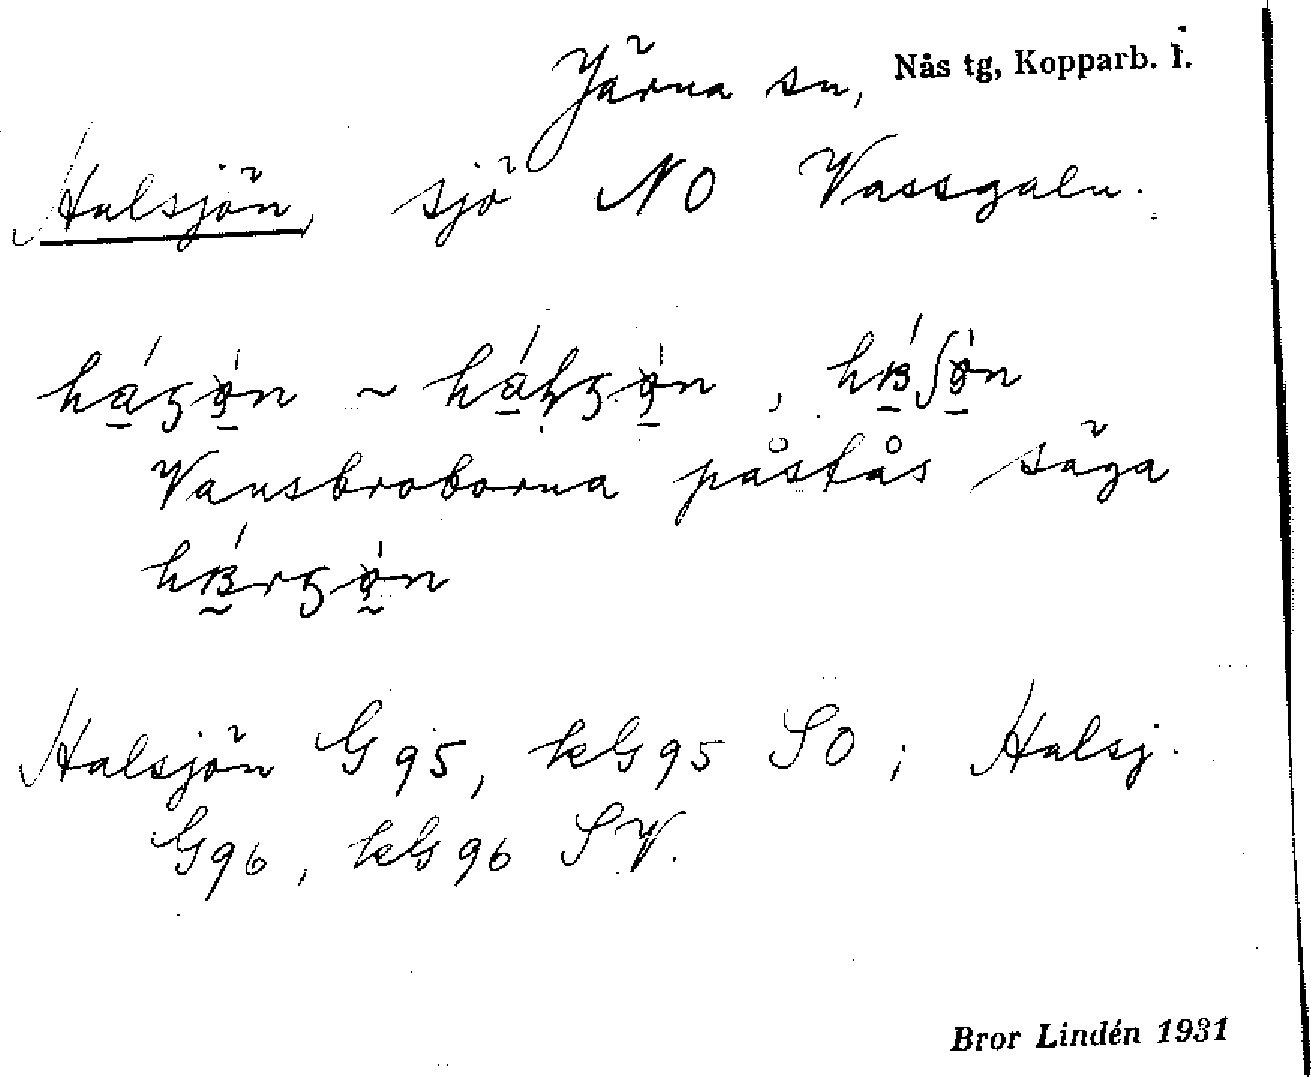 Järna sn, Nås tg, Kopparb. l.
Halsjön, sjö NO Vassgaln.
Vansbroborna påstås säga
Halsjön G 95, kG 95 SO; Halsj.
G 96, kG 96 SV.
Bror Lindén 1931